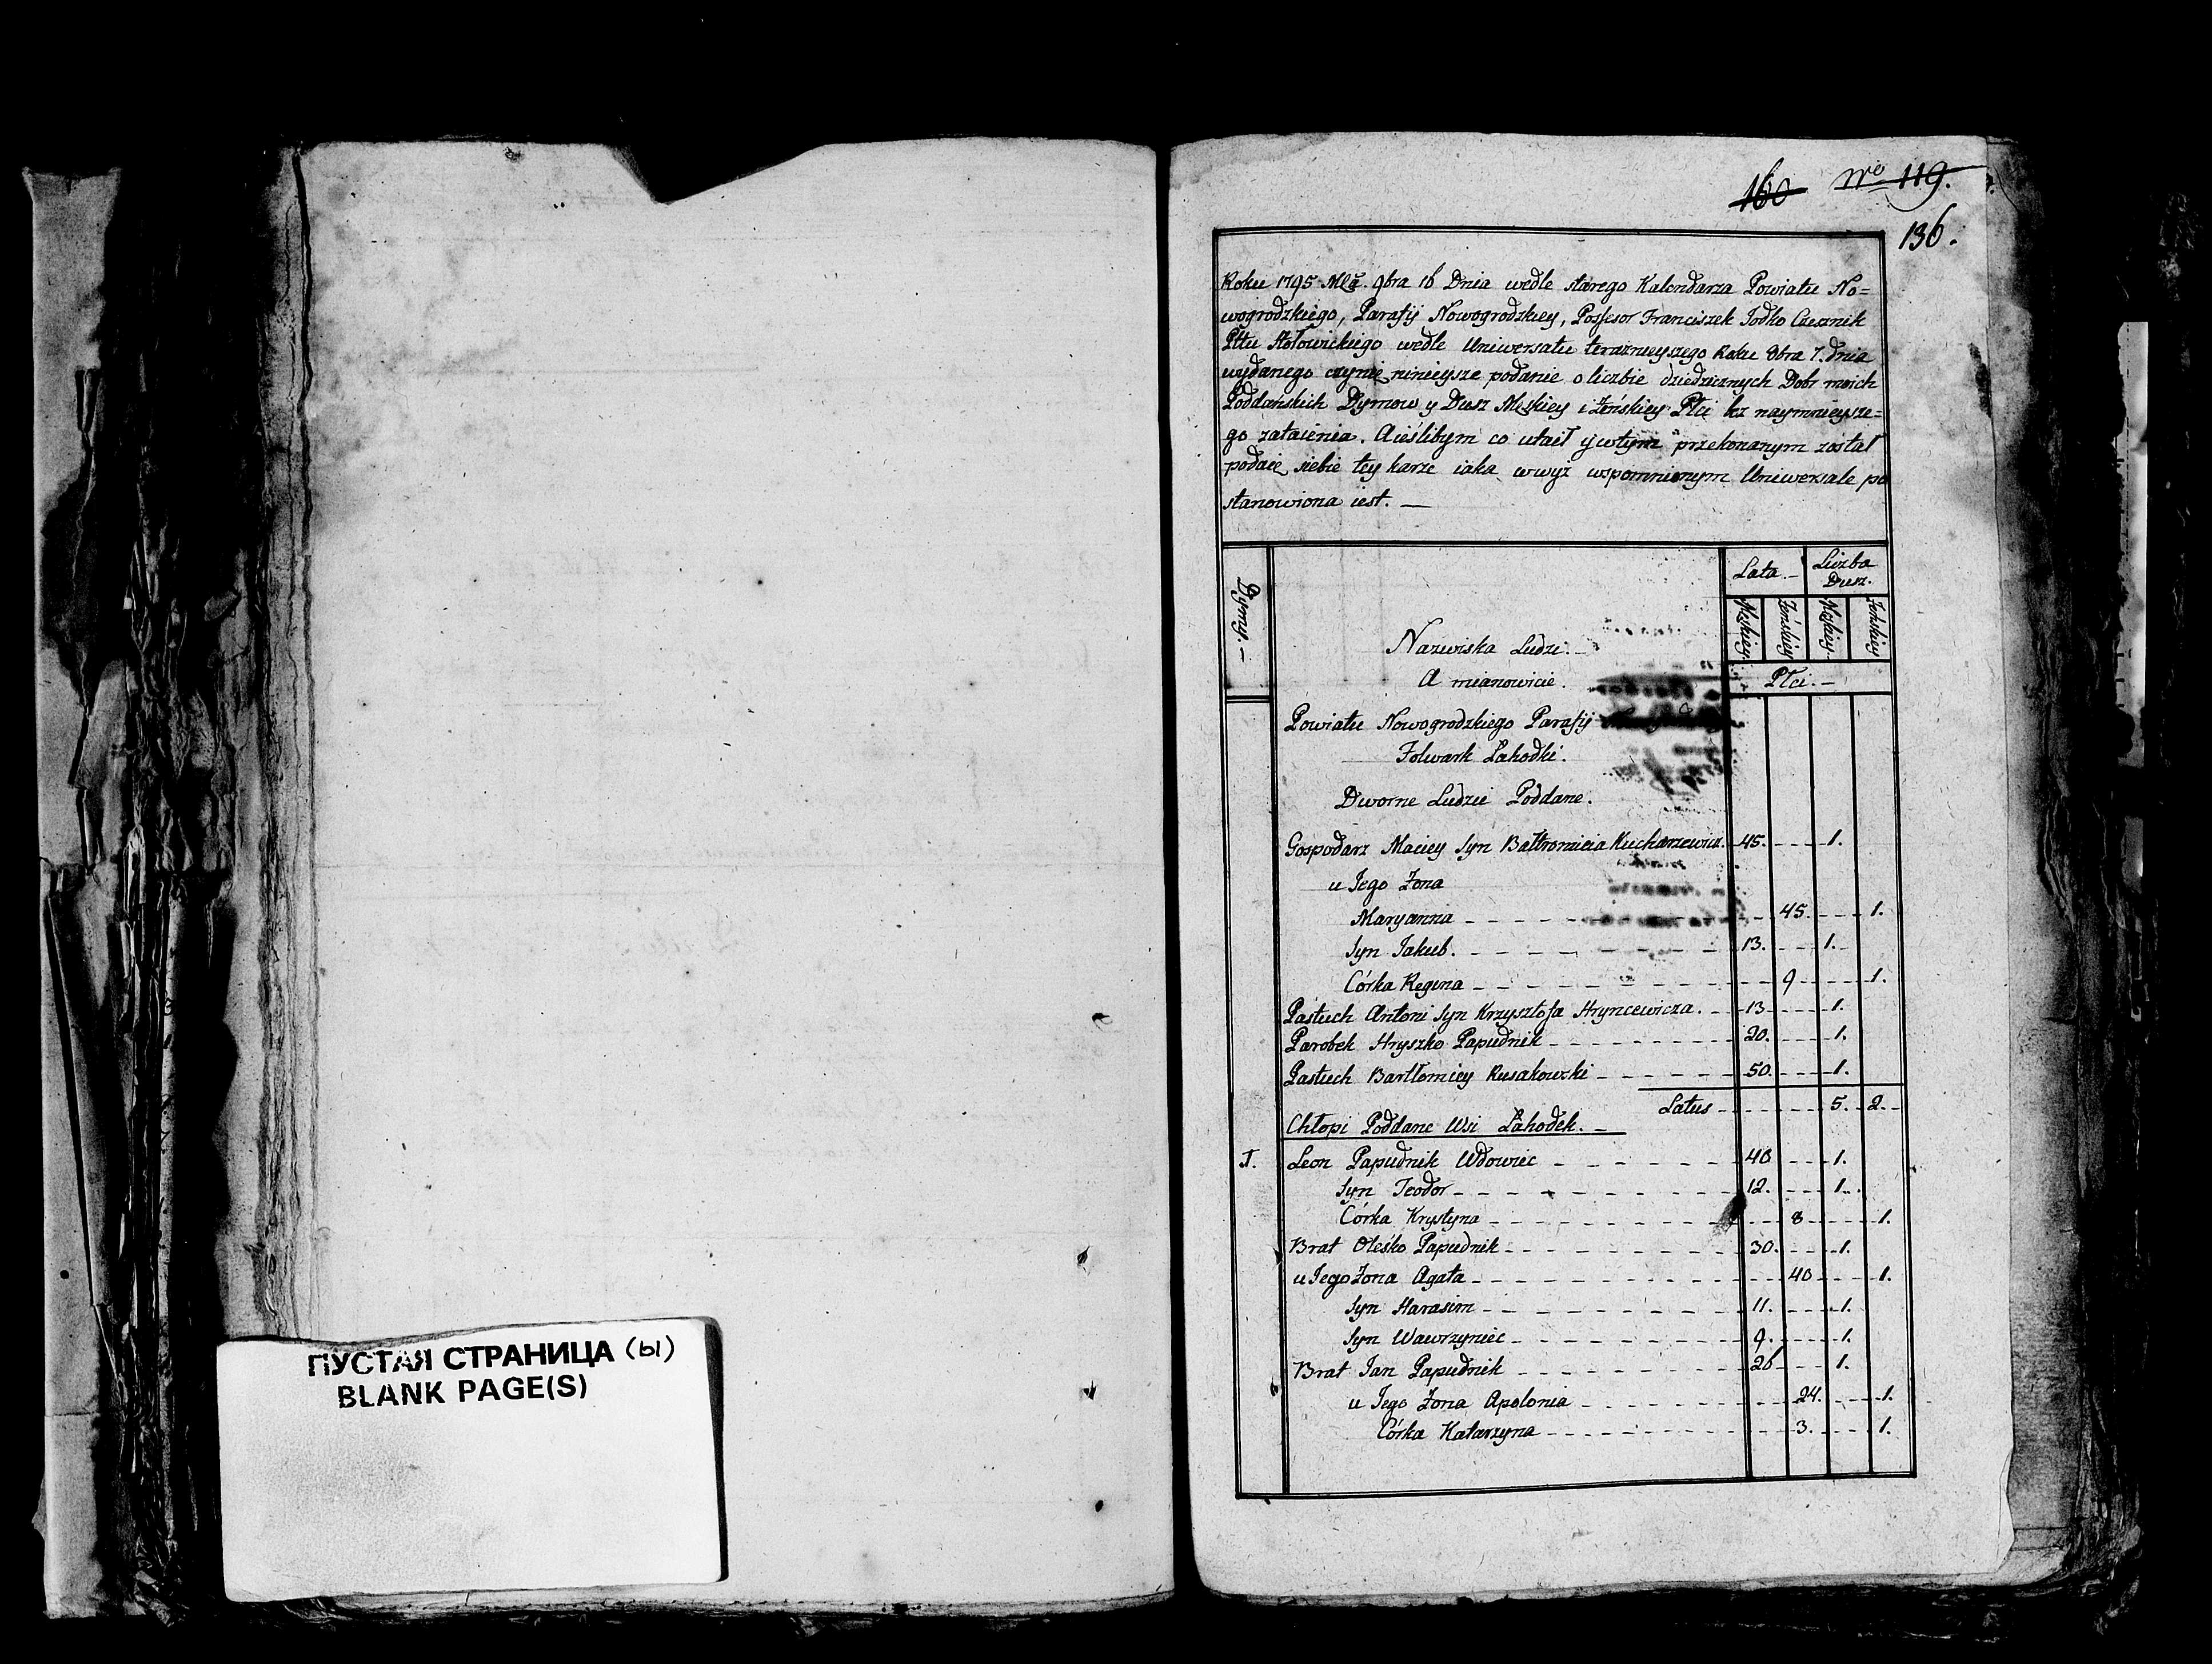 160 Nro 119.
136.
Roku 1795 Mca. 9bra 16 Dnia wedle starego Kalendarza Powiatu No=
wogrodzkiego, Parafij Nowogrodzkiey, Possesor Franciszek Jodko Czesznik
Pttu Stołowickiego wedle Uniwersału teraznieyszego Roku 8bra 7. dnia
wydanego czynię ninieysze podanie o liczbie dziedzicznych Dobr moich
Poddańskich Dymow y Dusz Męskiey i Żeńskiey Płci bez naymnieysze=
go zataienia. A ieślibym co utaił y w tym przekonanym został
podaię siebie tey karze iaka w wyz wspomnionym Uniwersale po
stanowiona iest. —
Dymy. –
Nazwiska Ludzi. –
A mianowicie.
Lata. – Liczba Dusz.
Męskiey Żeńskiey Męskiey Żeńskiey
Płci. –
Powiatu Nowogrodzkiego Parafij
Folwark Łahodki.
Dworne Ludzie Poddane.
Gospodarz Maciey Syn Bałtromieia Kucharzewicz. 45. 1.
u Jego Żona
Maryanna 45. 1.
Syn Jakub. 13. 1.
Córka Regina 9 1.
Pastuch Antoni Syn Krzysztofa Hryncewicza. 13 1.
Parobek Hryszko Papudnik 20. 1.
Pastuch Bartłomiey Rusakowski 50. 1.
Latus 5. 2.
Chłopi Poddane Wsi Łahodek. –
1. Leon Papudnik Wdowiec 40 1.
Syn Teodor 12. 1.
Córka Krystyna 8 1.
Brat Oleśko Papudnik 30. 1.
u Jego Żona Agata 40 1.
Syn Harasim 11. 1.
Syn Wawrzyniec 9. 1.
Brat Jan Papudnik 26 1.
u Jego Żona Apolonia 24. 1.
Córka Katarzyna 3. 1.
ПУСТАЯ СТРАНИЦА (ы)
BLANK PAGE(S)